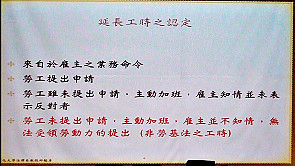 延長工時之認定
來自於雇主之業務命令
勞工提出申請
勞工雖未提出申請，主動加班，雇主知情並未表
示反對者
勞工未提出申請，主動加班，雇主並不知情，無
法受領勞動力的提出（非勞基法之工時）